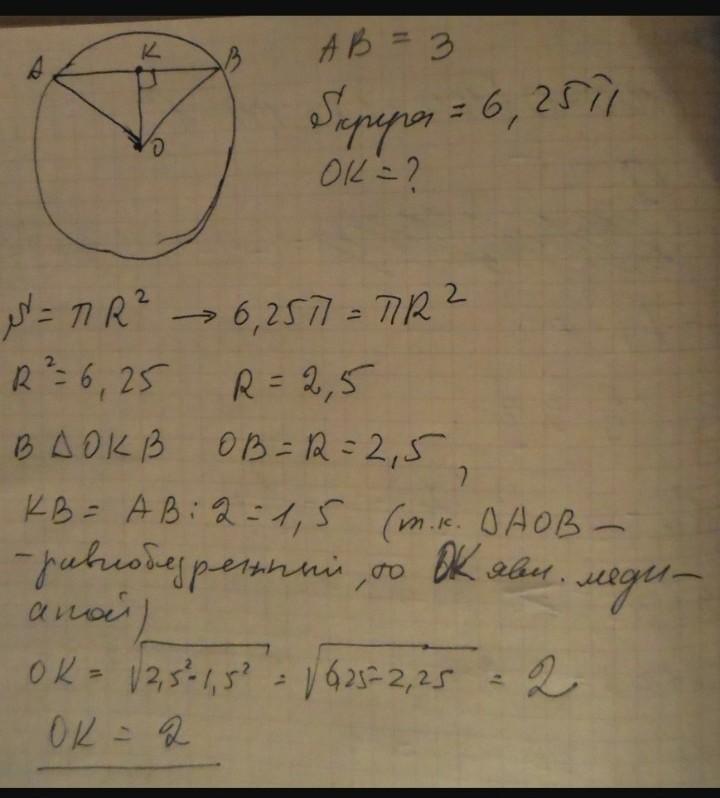 A K B
O
AB = 3
Sкруга = 6,25π
OK = ?
S = πR² → 6,25π = πR²
R² = 6,25 R = 2,5
В △OKB OB = R = 2,5,
KB = AB : 2 = 1,5 (т.к. △AOB –
– равнобедренный, то OK явл. меди–
аной)
OK = √2,5²-1,5² = √6,25-2,25 = 2
OK = 2